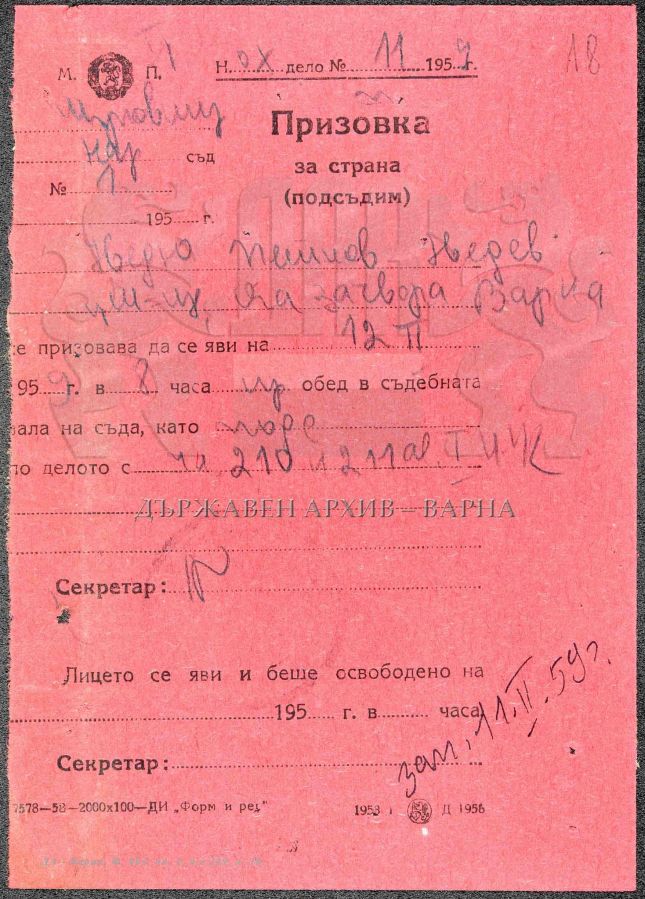 М. П.
Н. ох дело № 11 1959 г.
18
Призовка
нар съд
за страна
№ 1
(подсъдим)
195 г.
Недю Пенчов Недев
Варна
се призовава да се яви на 12 II
1959 г. в 8 часа пр обед в съдебната
зала на съда, като подс
по делото с чл. 210 и 211 ал. I НК
ДЪРЖАВЕН АРХИВ – ВАРНА
Секретар:
Лицето се яви и беше освободено на
195 г. в часа
Секретар:
зап. 11.II.59 г.
7578—58—2000х100—ДИ „Форм и ред" 1958 г Д 1956